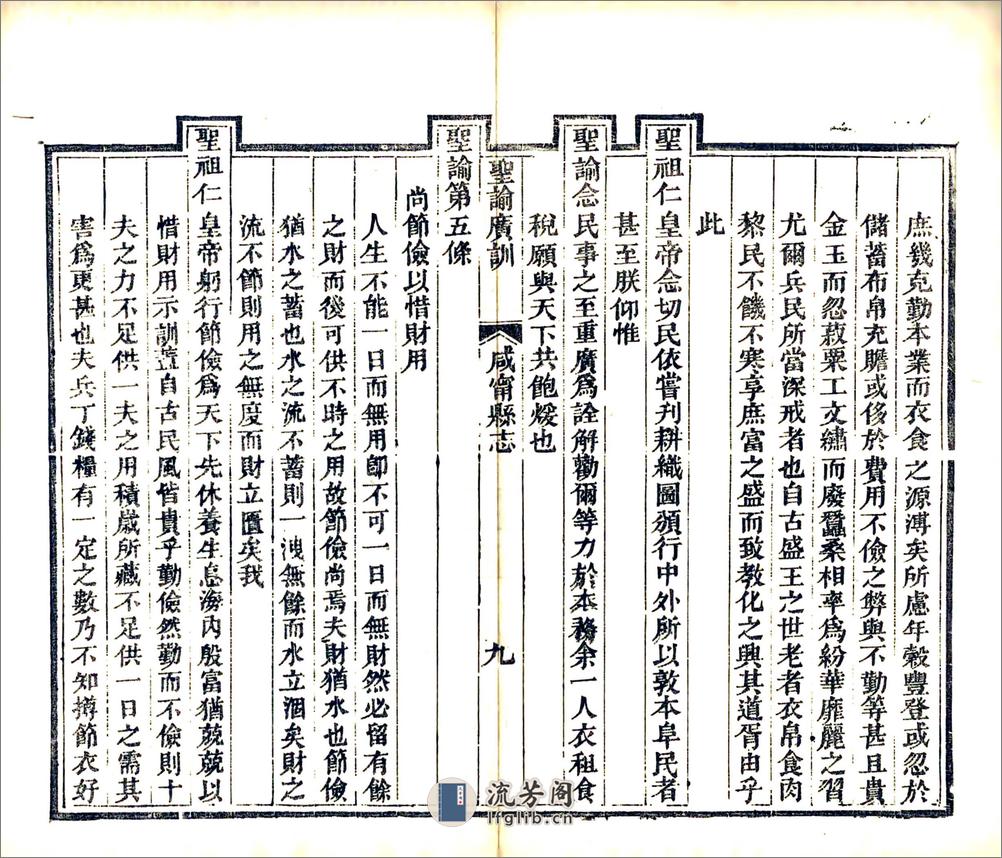 庶幾克勤本業而衣食之源溥矣所慮年穀豐登或忽於
儲蓄布帛充贍或侈於費用不儉之弊與不勤等甚且貴
金玉而忽菽粟工文繡而廢蠶桑相率爲紛華靡麗之習
尤爾兵民所當深戒者也自古盛王之世老者衣帛食肉
黎民不饑不寒享庶富之盛而致教化之興其道胥由乎
此
聖祖仁皇帝念切民依嘗刊耕織圖頒行中外所以敦本阜民者
甚至朕仰惟
聖諭念民事之至重廣爲詮解勸爾等力於本務余一人衣租食
稅願與天下共飽煖也
聖諭廣訓
咸甯縣志
九
聖諭第五條
尚節儉以惜財用
人生不能一日而無用卽不可一日而無財然必留有餘
之財而後可供不時之用故節儉尚焉夫財猶水也節儉
猶水之蓄也水之流不蓄則一洩無餘而水立涸矣財之
流不節則用之無度而財立匱矣我
聖祖仁皇帝躬行節儉爲天下先休養生息海內殷富猶兢兢以
惜財用示訓蓋自古民風皆貴乎勤儉然勤而不儉則十
夫之力不足供一夫之用積歲所藏不足供一日之需其
害爲更甚也夫兵丁錢糧有一定之數乃不知撙節衣好
流芳阁
lfglib.cn